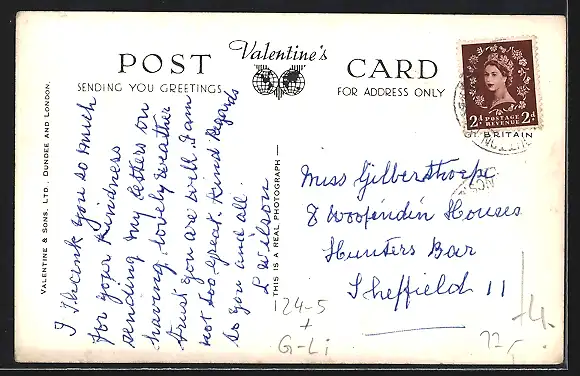 POST Valentine's CARD
SENDING YOU GREETINGS
FOR ADDRESS ONLY
VALENTINE & SONS, LTD., DUNDEE AND LONDON.
I thank you so much
for your kindness
sending my letters on
having lovely weather
trust you are well. I am
not too great. Kind Regards
to you and all.
L Wilson
THIS IS A REAL PHOTOGRAPH
2D POSTAGE REVENUE 2D
BRITAIN
Miss Gilberthorpe
8 Woofindin Houses
Hunters Bar
Sheffield 11
124-5
+
G-Li